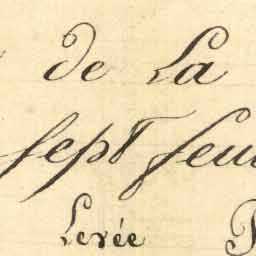 de La
sept
Levée